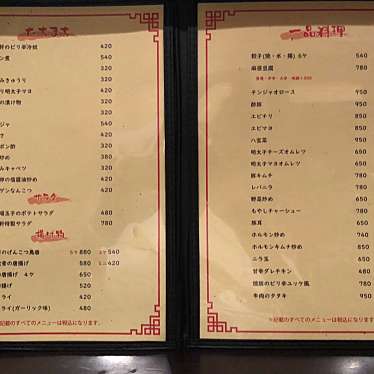 おつまみ
軒のピリ辛冷奴 420
ン煮 320
みきゅうり 320
り明太子マヨ 320
の漬け物 320
320
ジャ 320
ポン酢 320
炒め 380
みキャベツ 320
卵の塩醤油炒め 650
ゲンなんこつ 320
サラダ
場玉子のポテトサラダ 480
軒特製サラダ 780
揚げ物
軒のげんこつ鳥唐 5ケ 880 3ケ 540
唐揚げ 5ケ 660 ミニ 420
唐揚げ 4ケ 650
揚げ 520
ライ 420
ライ(ガーリック味) 480
※記載のすべてのメニューは税込になります。
一品料理
餃子(焼・水・揚) 6ケ 540
麻婆豆腐 780
チンジャオロース 950
酢豚 950
エビチリ 950
エビマヨ 950
八宝菜 950
明太子チーズオムレツ 780
明太子マヨオムレツ 780
豚キムチ 780
レバニラ 780
野菜炒め 650
もやしチャーシュー 780
豚耳 650
ホルモン炒め 740
ホルモンキムチ炒め 780
ニラ玉 650
甘辛ダレチキン 780
焼豚のピリ辛ユッケ風 780
牛肉のタタキ 950
※記載のすべてのメニューは税込になります。